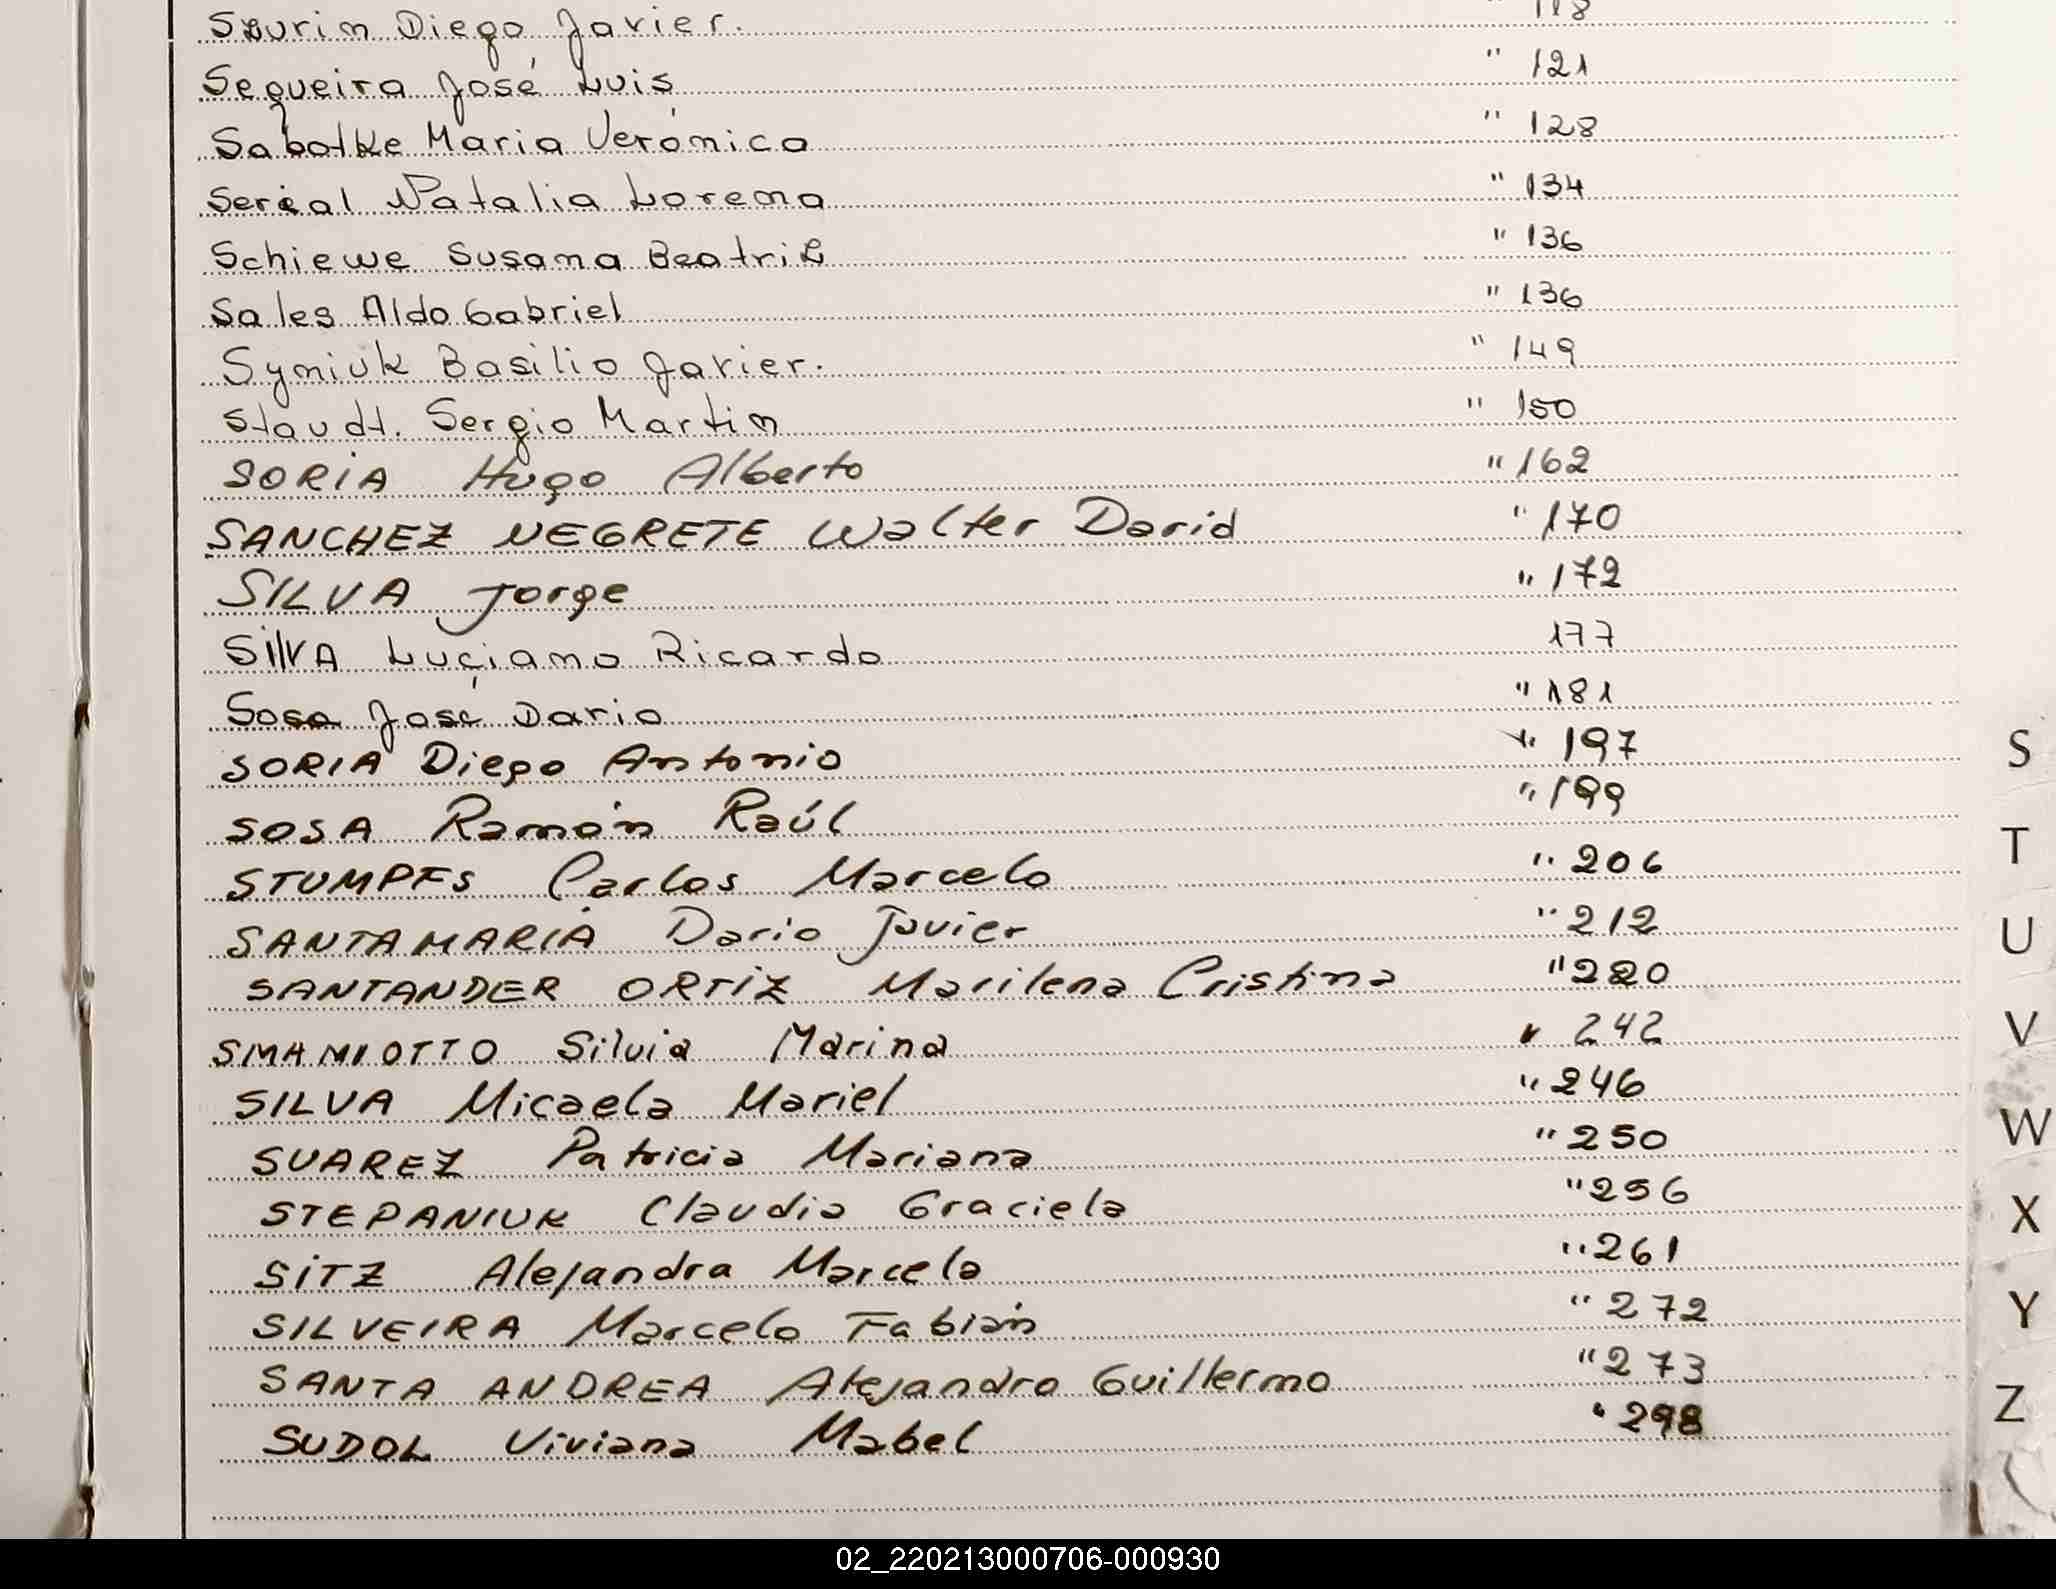 Diego Javier. 118
Sequeira José Luis " 121
Sabotke Maria Verónica " 128
Sereal Natalia Lorena " 134
Schiewe Susana Beatriz " 136
Sales Aldo Gabriel " 136
Syniuk Basilio Javier. " 149
Staudt. Sergio Martin " 150
SORIA Hugo Alberto " 162
SANCHEZ NEGRETE Walter David " 170
SILVA Jorge " 172
SilVA Luciano Ricardo 177
Sosa José Dario " 181
SORIA Diego Antonio " 197
SOSA Ramón Raúl " 199
STUMPFS Carlos Marcelo " 206
SANTAMARIA Dario Javier " 212
SANTANDER ORTIZ Marilena Cristina " 220
SMAMIOTTO Silvia Marina " 242
SILVA Micaela Mariel " 246
SUAREZ Patricia Mariana " 250
STEPANIUK Claudia Graciela " 256
SITZ Alejandra Marcela " 261
SILVEIRA Marcelo Fabián " 272
SANTA ANDREA Alejandro Guillermo " 273
SUDOL Viviana Mabel " 298
S
T
U
V
W
X
Y
Z
02_220213000706-000930